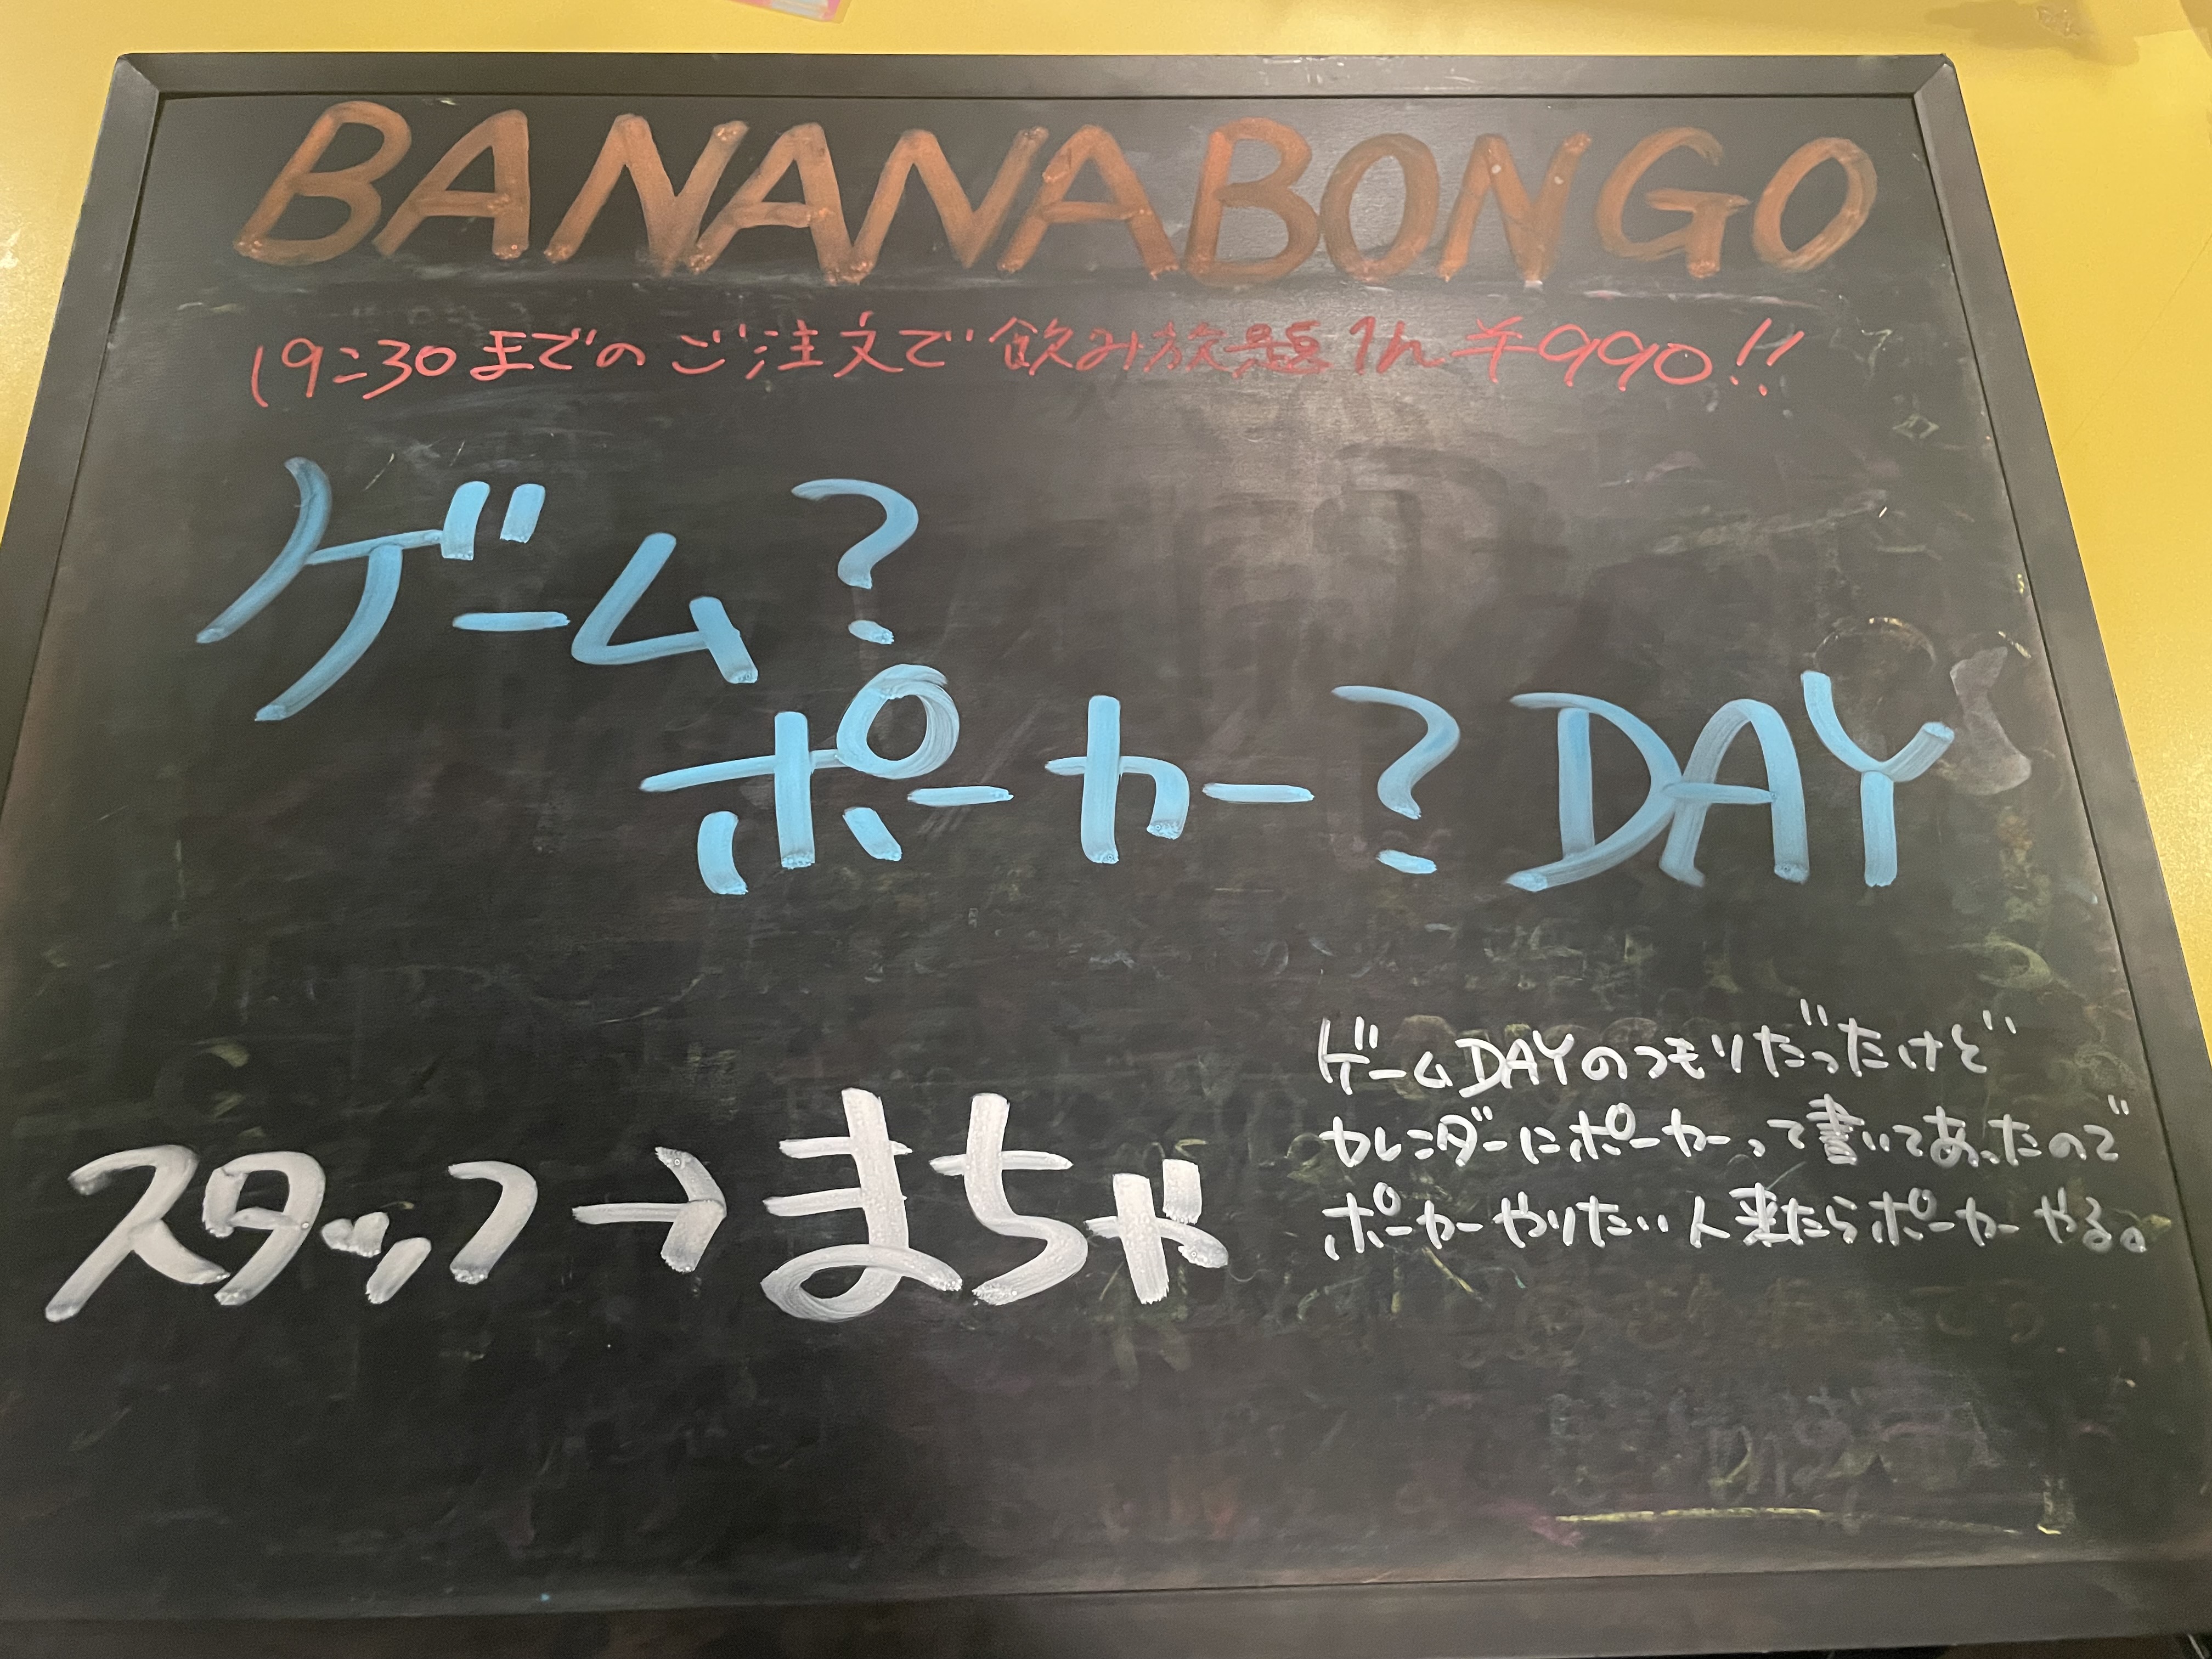 BANANABONGO
19:30までのご注文で飲み放題1h ¥990!!
ゲーム?
ポーカー?DAY
スタッフ→まちゃ
ゲームDAYのつモリだったけど
カレンダーにポーカーって書いてあったので
ポーカーやりたい人来たらポーカーやる。